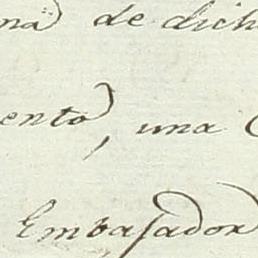 na de dich
ento, una C
Embasador